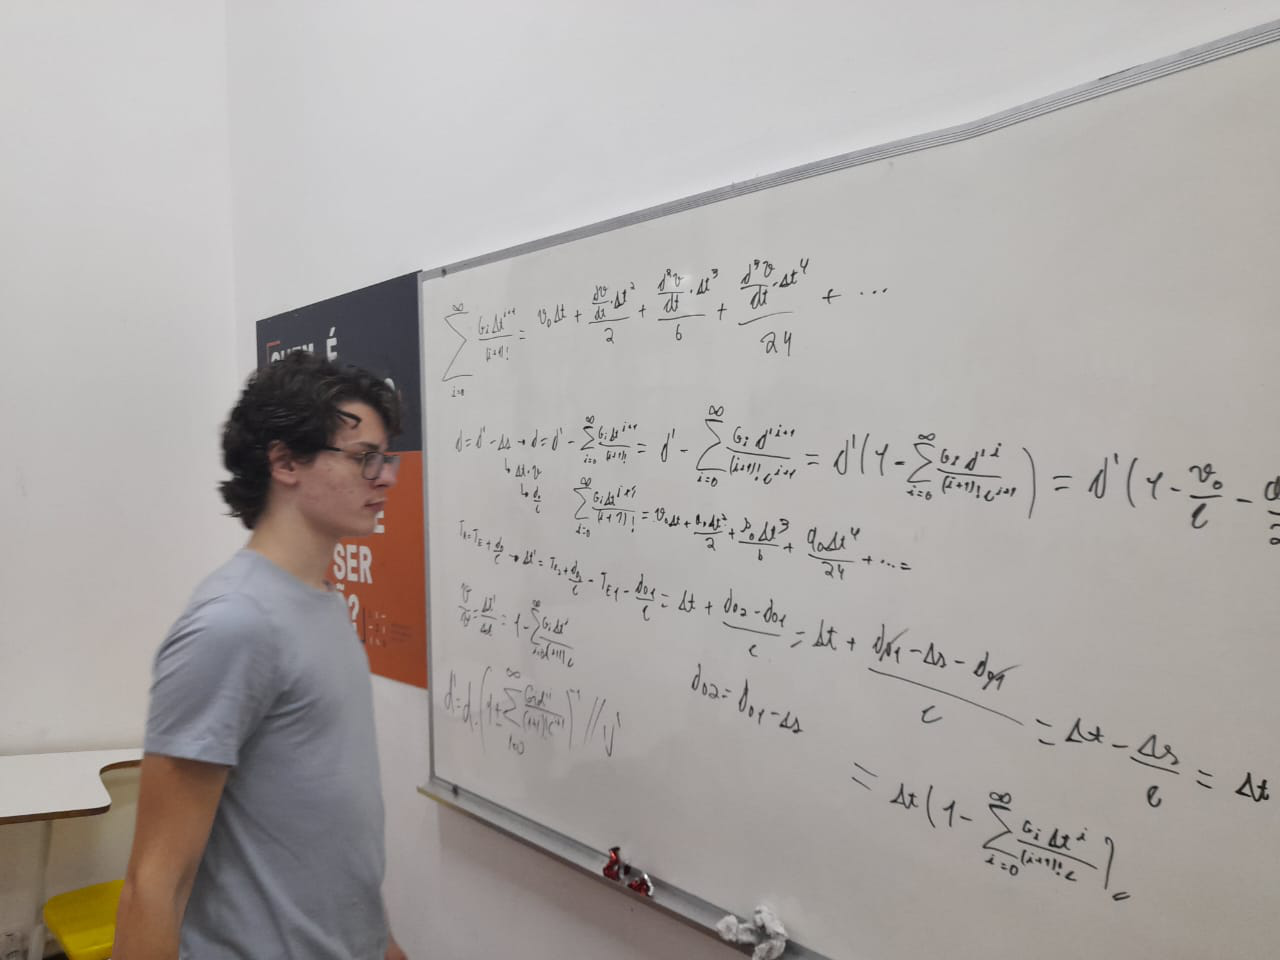 QUEM É
SER
?
∞ ∑ i=0 Gi Δt^(i+1) / (i+1)! = v₀Δt + (dv/dt · Δt²)/2 + (d²v/dt · Δt³)/6 + (d³v/dt · Δt⁴)/24 + ...
d = d' - Δs → d = d' - ∞ ∑ i=0 Gi Δt^(i+1) / (i+1)! = d' - ∞ ∑ i=0 Gi d'^(i+1) / (i+1)! c^(i+1) = d' (1 - ∞ ∑ i=0 Gi d'^i / (i+1)! c^(i+1)) = d' (1 - v₀/c -
↳ Δt · v
↳ d₀/c
∞ ∑ i=0 Gi Δt^(i+1) / (i+1)! = v₀Δt + a₀Δt²/2 + J₀Δt³/6 + q₀Δt⁴/24 + ... =
TR = TE + d₀/c → Δt' = TE2 + d02/c - TE1 - d01/c = Δt + (d02 - d01)/c = Δt + (d01 - Δs - d01)/c = Δt - Δs/c = Δt
Δt'/Δt = 1 - ∞ ∑ i=0 Gi Δt^i / (i+1)! c
d02 = d01 - Δs
= Δt (1 - ∞ ∑ i=0 Gi Δt^i / (i+1)! c)
d' = d · (1 ± ∞ ∑ i=0 Gi d'^i / (i+1)! c^(i+1))^-1 //